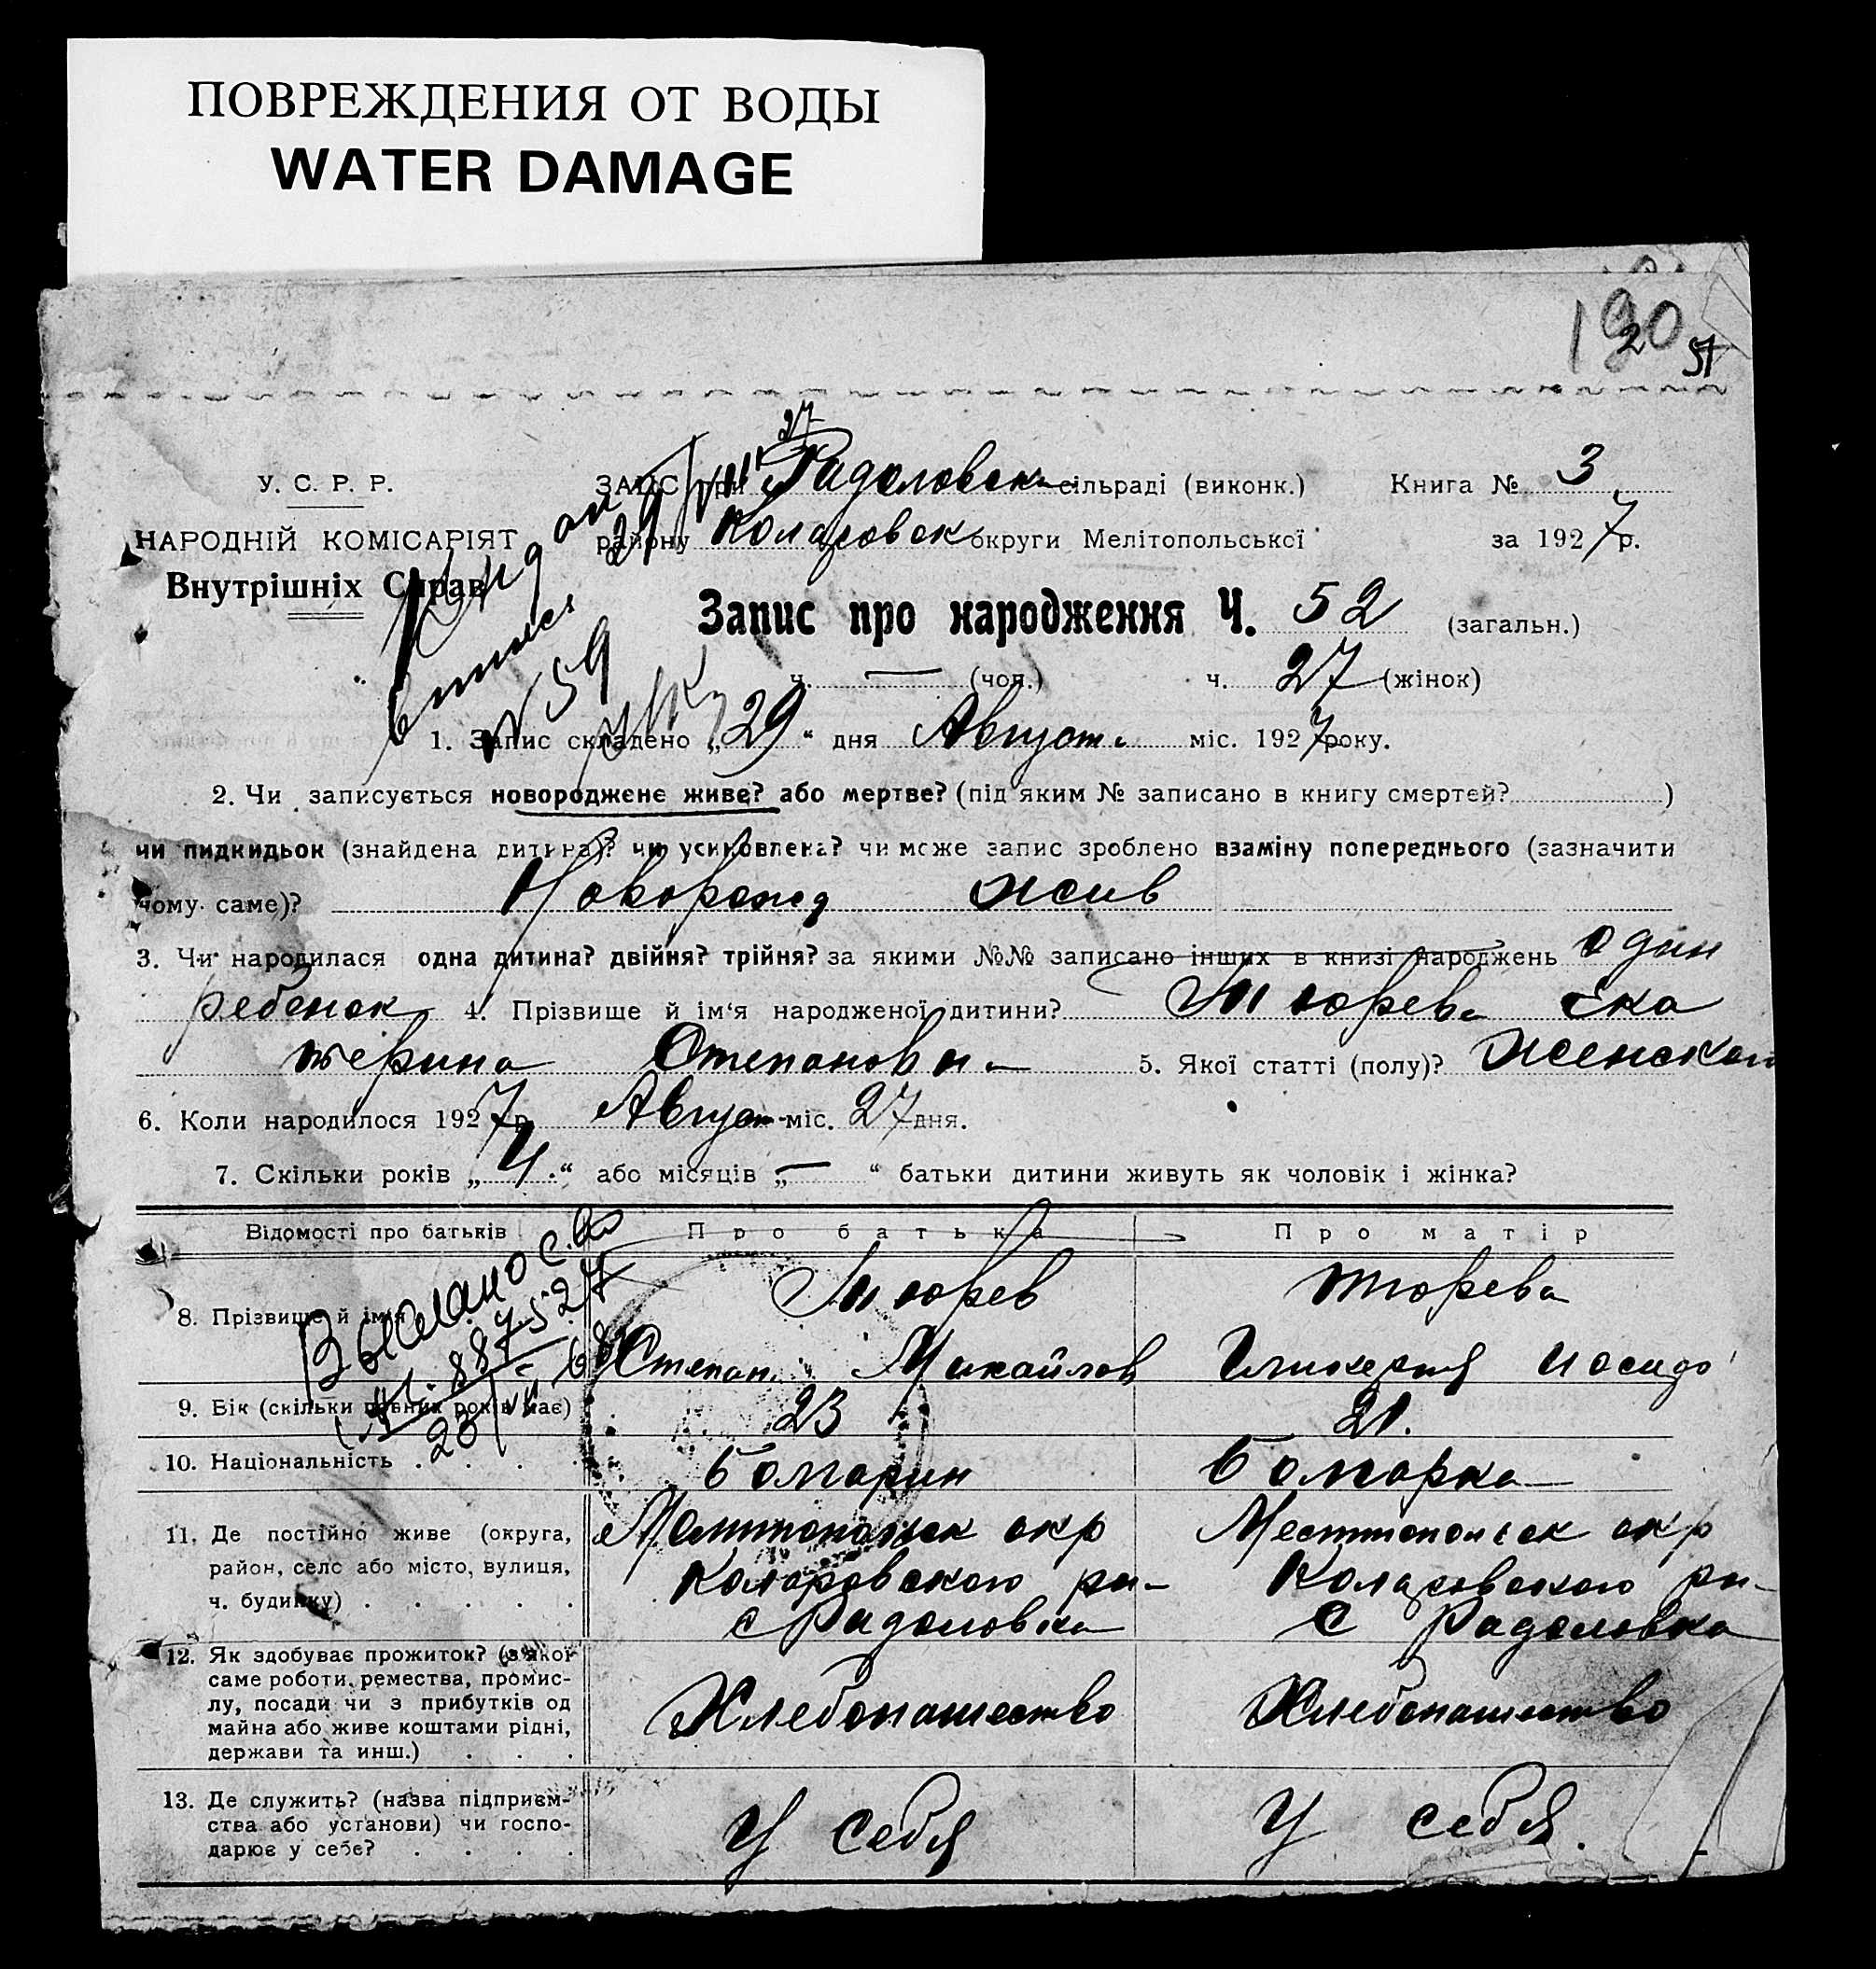 ПОВРЕЖДЕНИЯ ОТ ВОДЫ
WATER DAMAGE
190
2
51
27
У. С. Р. Р.
НАРОДНІЙ КОМІСАРІЯТ
Внутрішніх Справ
ЗАПИС при Радоловск сільраді (виконк.) Книга № 3
району Коларовск округи Мелітопольської за 1927 р.
Запис про народження Ч. 52 (загальн.)
ч. — (чол.) ч. 27 (жінок)
№ 59
1. Запис складено „29“ дня Август міс. 1927 року.
2. Чи записується новороджене живе? або мертве? (під яким № записано в книгу смертей? )
чи пидкидьок (знайдена дитина)? чи усиновлена? чи може запис зроблено взаміну попереднього (зазначити
чому саме)?Новорожд жив
3. Чи народилася одна дитина? двійня? трійня? за якими №№ записано інших в книзі народжень один
ребенок 4. Прізвище й ім‘я народженої дитини? Тюрева Ека
терина Степановна 5. Якої статті (полу)? Женского
6. Коли народилося 1927 р. Август міс. 27 дня.
7. Скільки років „4.“ або місяців „—“ батьки дитини живуть як чоловік і жінка?
Відомості про батьків Про батька Про матір
8. Прізвище й ім‘я Тюрев Тюрева
Степан Михайлов Гликерия
9. Вік (скільки повних років має) 23 21.
10. Національність . . . . Болгарин Болгарка
11. Де постійно живе (округа, Мелитопольск окр Мелитопольск окр
район, село або місто, вулиця, Коларовского ра- Коларовского ра-
ч. будинку) . . . . . с Радоловка С Радоловка
12. Як здобуває прожиток? (з якої
саме роботи, ремества, промис-
лу, посади чи з прибутків од Хлебопашество Хлебопашество
майна або живе коштами рідні,
держави та инш.) . . .
13. Де служить? (назва підприєм-
ства або установи) чи госпо- У себя У себя.
дарює у себе? . . . .